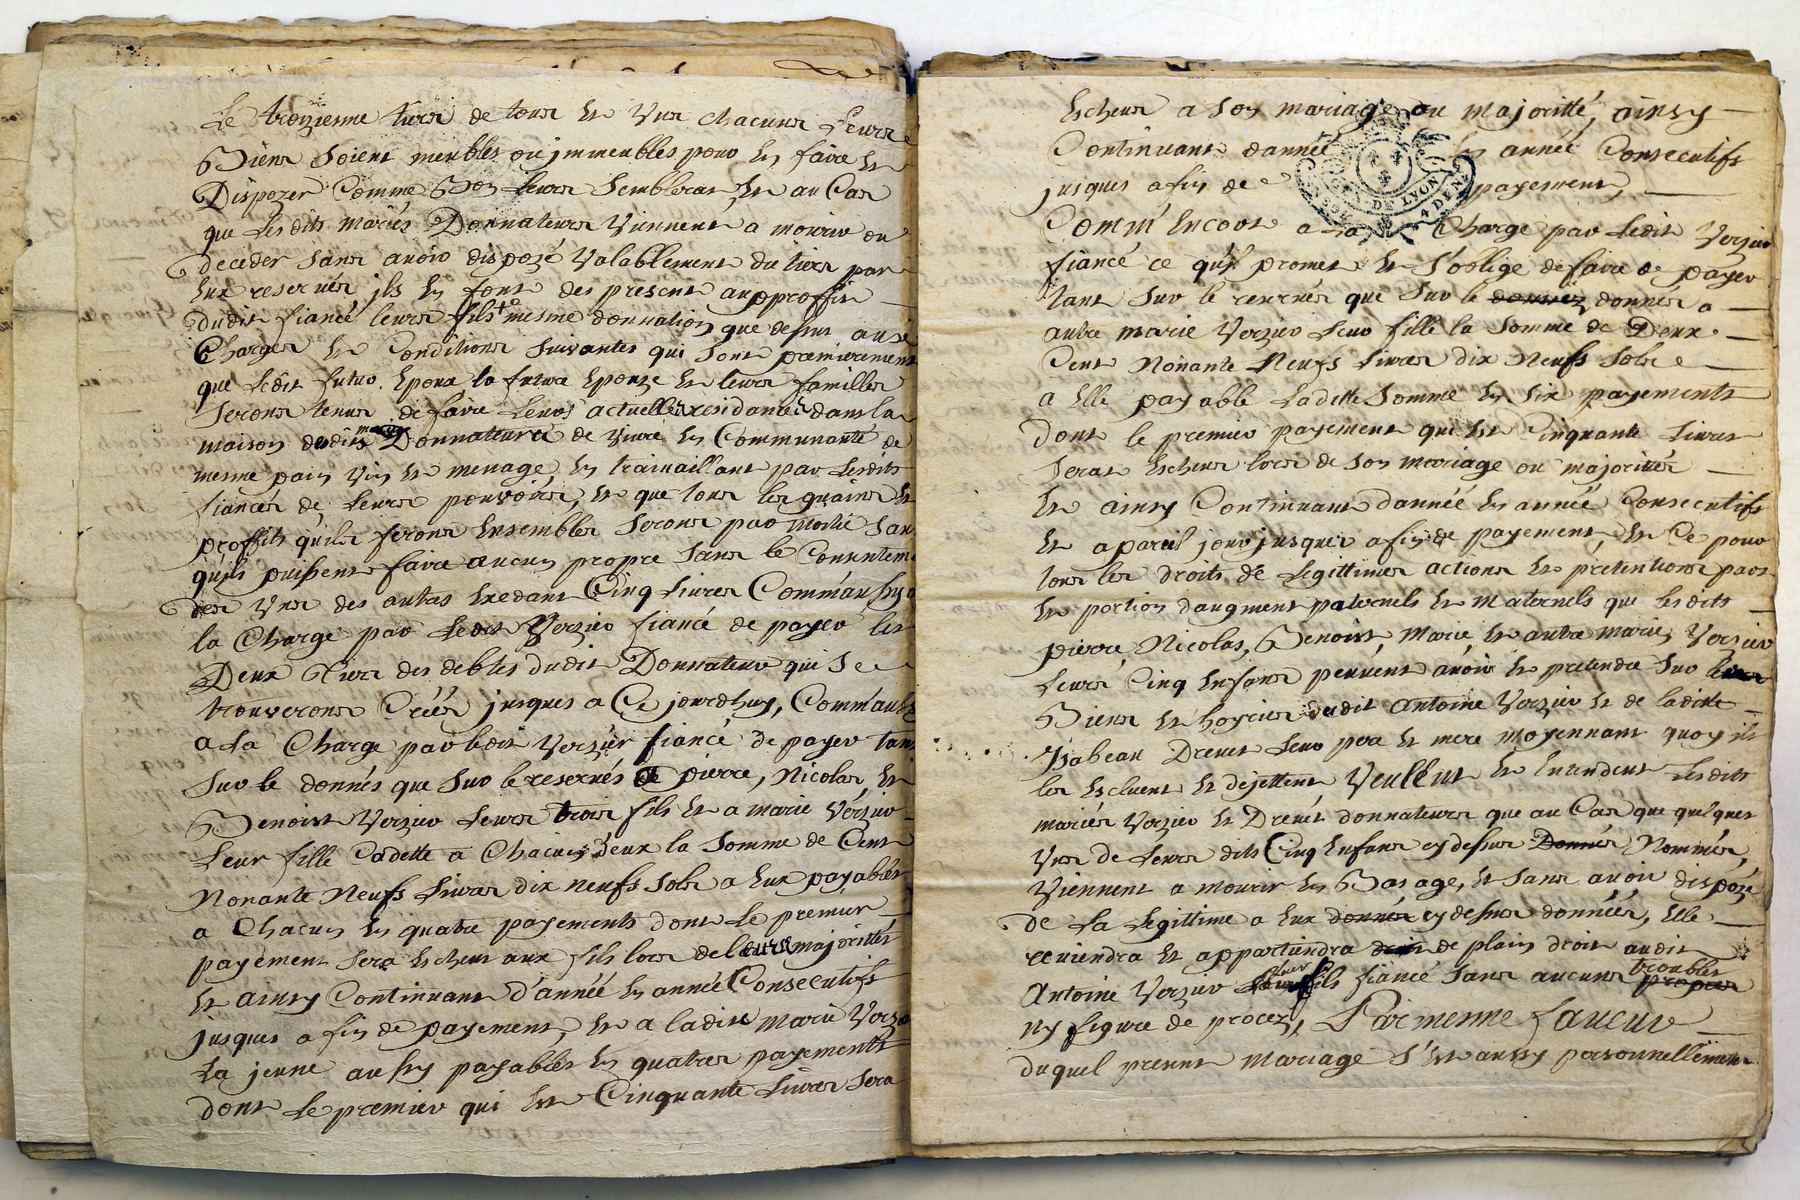 Le troizieme tiers de tous et Uns chacuns Leurs
Biens soient meubles ou jmmeubles pour en faire et
Dispozer Comme Bon Leurs Semblerat Et au Cas
que Lesdits mariés Donnateurs Viennent a mourir ou
deceder sans avoir dispozé Valablement du tiers par
Eux reservés jls en font des present au proffit
dudit fiancé leurs fils mesme donnation que dessus aux
Charges et Conditions Suivantes qui sont premierement
que Ledit futur Epoux la future Epouze et leurs familles
Seronts tenus de faire Leurs actuelle residance dans la
maison desdits mariés Donnateurs de Vivre en Communauté de
mesme pain Vin et menage, en travaillant par Lesdits
fiancés de Leurs pouvoirs, et que tous les guains et
proffits quils feront Ensembles Seronts par moitié San
quils puissent faire aucun propre Sans le Consenteme
des Uns des autres Exedant Cinq Livres Comm'aussy a
la Charge par Ledit Verzier fiancé de payer les
Deux Tiers des debtes dudit Donnateur qui Se
trouveronts Créés jusques a Ce jourdhuy, Comm'aussy
a la Charge par ledit Verzier fiancé de payer tant
Sur le donnés que Sur le reservés a pierre, Nicolas, et
Benoist Verzier Leurs trois fils et a marie Verzier
Leur fille Cadette a Chacun d'eux la Somme de Cent
Nonante Neufs Livres dix neufs sols a Eux payables
a Chacun en quatre payements dont Le premier
payement Sera Escheut aux fils lors de leurs majorittés
et ainsy Continuant d'année en année Consecutifs
jusques a fin de payement, et a ladite marie Verzier
La jeune aussy payables en quatres payements
dont Le premier qui est Cinquante Livres Sera
Escheus a Son mariage ou majoritté, ainsy
Continuant dannée en année Consecutifs
jusques a fin de payement,
DE LYON 4 DEN
Comm'Encore a la Charge par Ledit Verzier
fiancé ce qu'il promet et S'oblige de faire de payer
tant Sur le reservés que Sur le donnez donnés a
autre marie Verzier Leur fille la Somme de Deux
Cent Nonante Neufs Livres dix Neufs Sols
a Elle payable Laditte Somme en Six payements
dont le premier payement qui est Cinquante Livres
Serat Escheus lors de Son mariage ou majorittés
et ainsy Continuant dannéé en année Consecutifs
et a pareil jour jusques a fin de payement, et Ce pour
tous les droits de Legittimes actions et pretentions pars
et portion daugment paternels et maternels que lesdits
pierre, Nicolas, Benoist, Marie, et autre marie, Verzier
Leurs Cinq Enfans peuvent avoir et pretendre Sur leurs
Biens et hoyries dudit antoine Verzier et de laditte
Jsabeau Drevet Leur pere et mere moyennant quoy ils
les Excluent et dejettent Veullent et Entendent Lesdits
mariés Verzier et Drevet donnateurs que au Cas que quelques
Uns de Leurs dits Cinq Enfans cy dessus Donnés Nommés,
Viennent a mourir en Bas age, et Sans avoir dispozé
de La Legittime a Eux donnés cy dessus donnéés, Elle
reviendra et appartiendra droit de plain droit audit
Antoine Verzier leur fils fiancé Sans aucuns troubles propres
ny figure de procez, Par mesme faveur
duquel present mariage S'Est aussy personnellement